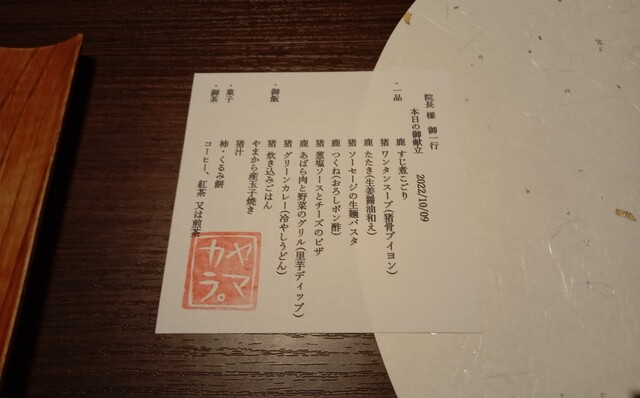 院長 様 御一行
本日の御献立 2022/10/09
・一品
鹿 すじ煮こごり
猪 ワンタンスープ(猪骨ブイヨン)
鹿 たたき(生姜醤油和え)
猪 ソーセージの生麺パスタ
鹿 つくね(おろしポン酢)
猪 葱塩ソースとチーズのピザ
鹿 あばら肉と野菜のグリル(里芋ディップ)
猪 グリーンカレー(冷やしうどん)
・御飯
猪 炊き込みごはん
やまから産玉子焼き
猪汁
・菓子
柿・くるみ餅
・御茶
コーヒー、紅茶 又は煎茶
ヤマ
カラ。